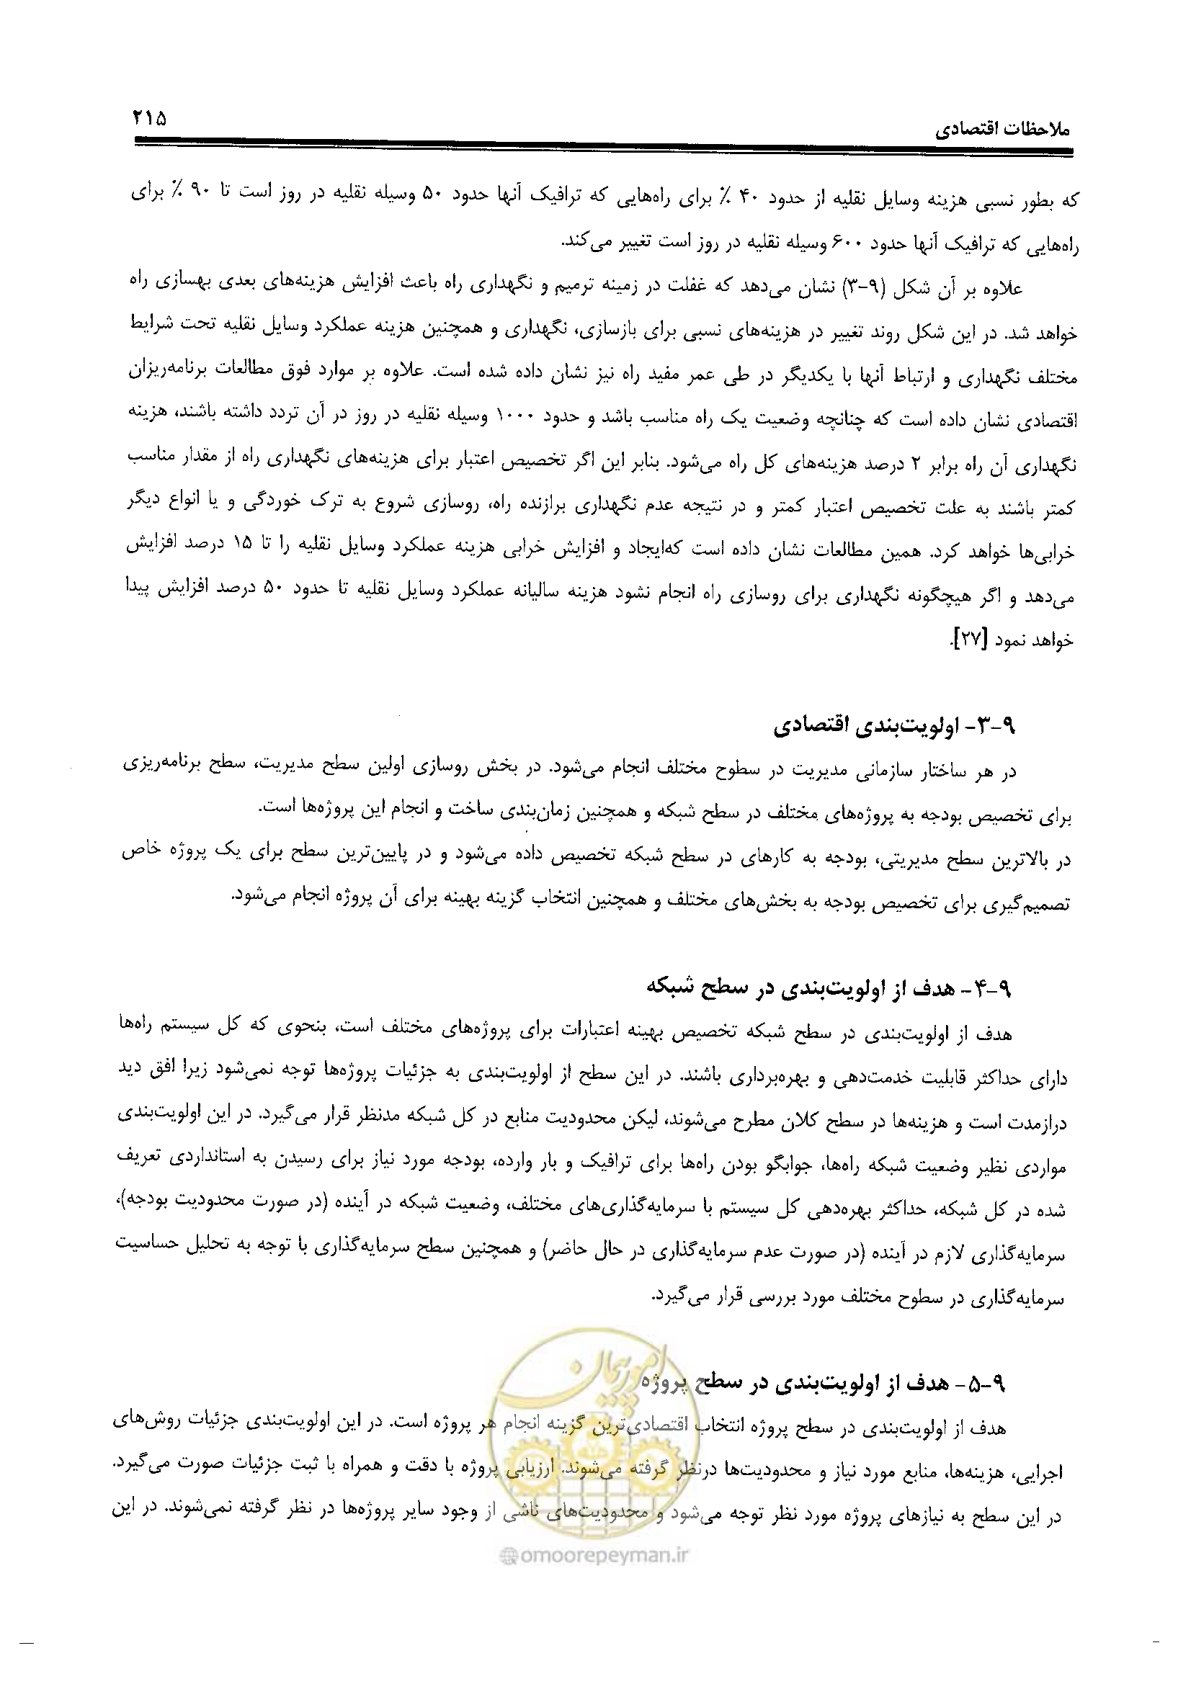 ملاحظات اقتصادی
۲۱۵
که بطور نسبی هزینه وسایل نقلیه از حدود ۴۰ ٪ برای راه‌هایی که ترافیک آنها حدود ۵۰ وسیله نقلیه در روز است تا ۹۰ ٪ برای
راه‌هایی که ترافیک آنها حدود ۶۰۰ وسیله نقلیه در روز است تغییر می‌کند.
علاوه بر آن شکل (۹-۳) نشان می‌دهد که غفلت در زمینه ترمیم و نگهداری راه باعث افزایش هزینه‌های بعدی بهسازی راه
خواهد شد. در این شکل روند تغییر در هزینه‌های نسبی برای بازسازی، نگهداری و همچنین هزینه عملکرد وسایل نقلیه تحت شرایط
مختلف نگهداری و ارتباط آنها با یکدیگر در طی عمر مفید راه نیز نشان داده شده است. علاوه بر موارد فوق مطالعات برنامه‌ریزان
اقتصادی نشان داده است که چنانچه وضعیت یک راه مناسب باشد و حدود ۱۰۰۰ وسیله نقلیه در روز در آن تردد داشته باشند، هزینه
نگهداری آن راه برابر ۲ درصد هزینه‌های کل راه می‌شود. بنابر این اگر تخصیص اعتبار برای هزینه‌های نگهداری راه از مقدار مناسب
کمتر باشند به علت تخصیص اعتبار کمتر و در نتیجه عدم نگهداری برازنده راه، روسازی شروع به ترک خوردگی و یا انواع دیگر
خرابی‌ها خواهد کرد. همین مطالعات نشان داده است که‌ایجاد و افزایش خرابی هزینه عملکرد وسایل نقلیه را تا ۱۵ درصد افزایش
می‌دهد و اگر هیچگونه نگهداری برای روسازی راه انجام نشود هزینه سالیانه عملکرد وسایل نقلیه تا حدود ۵۰ درصد افزایش پیدا
خواهد نمود [۲۷].
۹-۳- اولویت‌بندی اقتصادی
در هر ساختار سازمانی مدیریت در سطوح مختلف انجام می‌شود. در بخش روسازی اولین سطح مدیریت، سطح برنامه‌ریزی
برای تخصیص بودجه به پروژه‌های مختلف در سطح شبکه و همچنین زمان‌بندی ساخت و انجام این پروژه‌ها است.
در بالاترین سطح مدیریتی، بودجه به کارهای در سطح شبکه تخصیص داده می‌شود و در پایین‌ترین سطح برای یک پروژه خاص
تصمیم‌گیری برای تخصیص بودجه به بخش‌های مختلف و همچنین انتخاب گزینه بهینه برای آن پروژه انجام می‌شود.
۹-۴- هدف از اولویت‌بندی در سطح شبکه
هدف از اولویت‌بندی در سطح شبکه تخصیص بهینه اعتبارات برای پروژه‌های مختلف است، بنحوی که کل سیستم راه‌ها
دارای حداکثر قابلیت خدمت‌دهی و بهره‌برداری باشند. در این سطح از اولویت‌بندی به جزئیات پروژه‌ها توجه نمی‌شود زیرا افق دید
درازمدت است و هزینه‌ها در سطح کلان مطرح می‌شوند، لیکن محدودیت منابع در کل شبکه مدنظر قرار می‌گیرد. در این اولویت‌بندی
مواردی نظیر وضعیت شبکه راه‌ها، جوابگو بودن راه‌ها برای ترافیک و بار وارده، بودجه مورد نیاز برای رسیدن به استانداردی تعریف
شده در کل شبکه، حداکثر بهره‌دهی کل سیستم با سرمایه‌گذاری‌های مختلف، وضعیت شبکه در آینده (در صورت محدودیت بودجه)،
سرمایه‌گذاری لازم در آینده (در صورت عدم سرمایه‌گذاری در حال حاضر) و همچنین سطح سرمایه‌گذاری با توجه به تحلیل حساسیت
سرمایه‌گذاری در سطوح مختلف مورد بررسی قرار می‌گیرد.
امور پیمان
۹-۵- هدف از اولویت‌بندی در سطح پروژه
هدف از اولویت‌بندی در سطح پروژه انتخاب اقتصادی‌ترین گزینه انجام هر پروژه است. در این اولویت‌بندی جزئیات روش‌های
اجرایی، هزینه‌ها، منابع مورد نیاز و محدودیت‌ها درنظر گرفته می‌شوند. ارزیابی پروژه با دقت و همراه با ثبت جزئیات صورت می‌گیرد.
در این سطح به نیازهای پروژه مورد نظر توجه می‌شود و محدودیت‌های ناشی از وجود سایر پروژه‌ها در نظر گرفته نمی‌شوند. در این
@omoorepeyman.ir